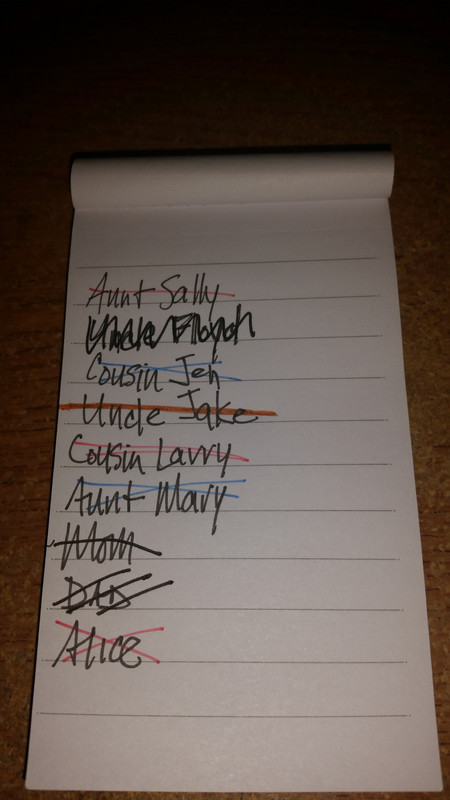 Aunt Sally
Uncle
Cousin Jeh
Uncle Jake
Cousin Larry
Aunt Mary
Mom
DAD
Alice